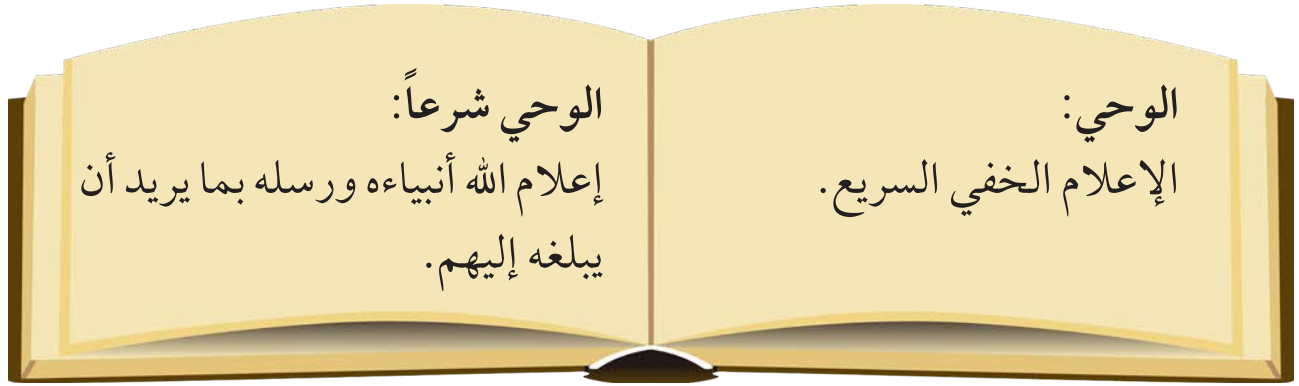 الوحي:
الإعلام الخفي السريع.
الوحي شرعاً:
إعلام الله أنبياءه ورسله بما يريد أن
يبلغه إليهم.